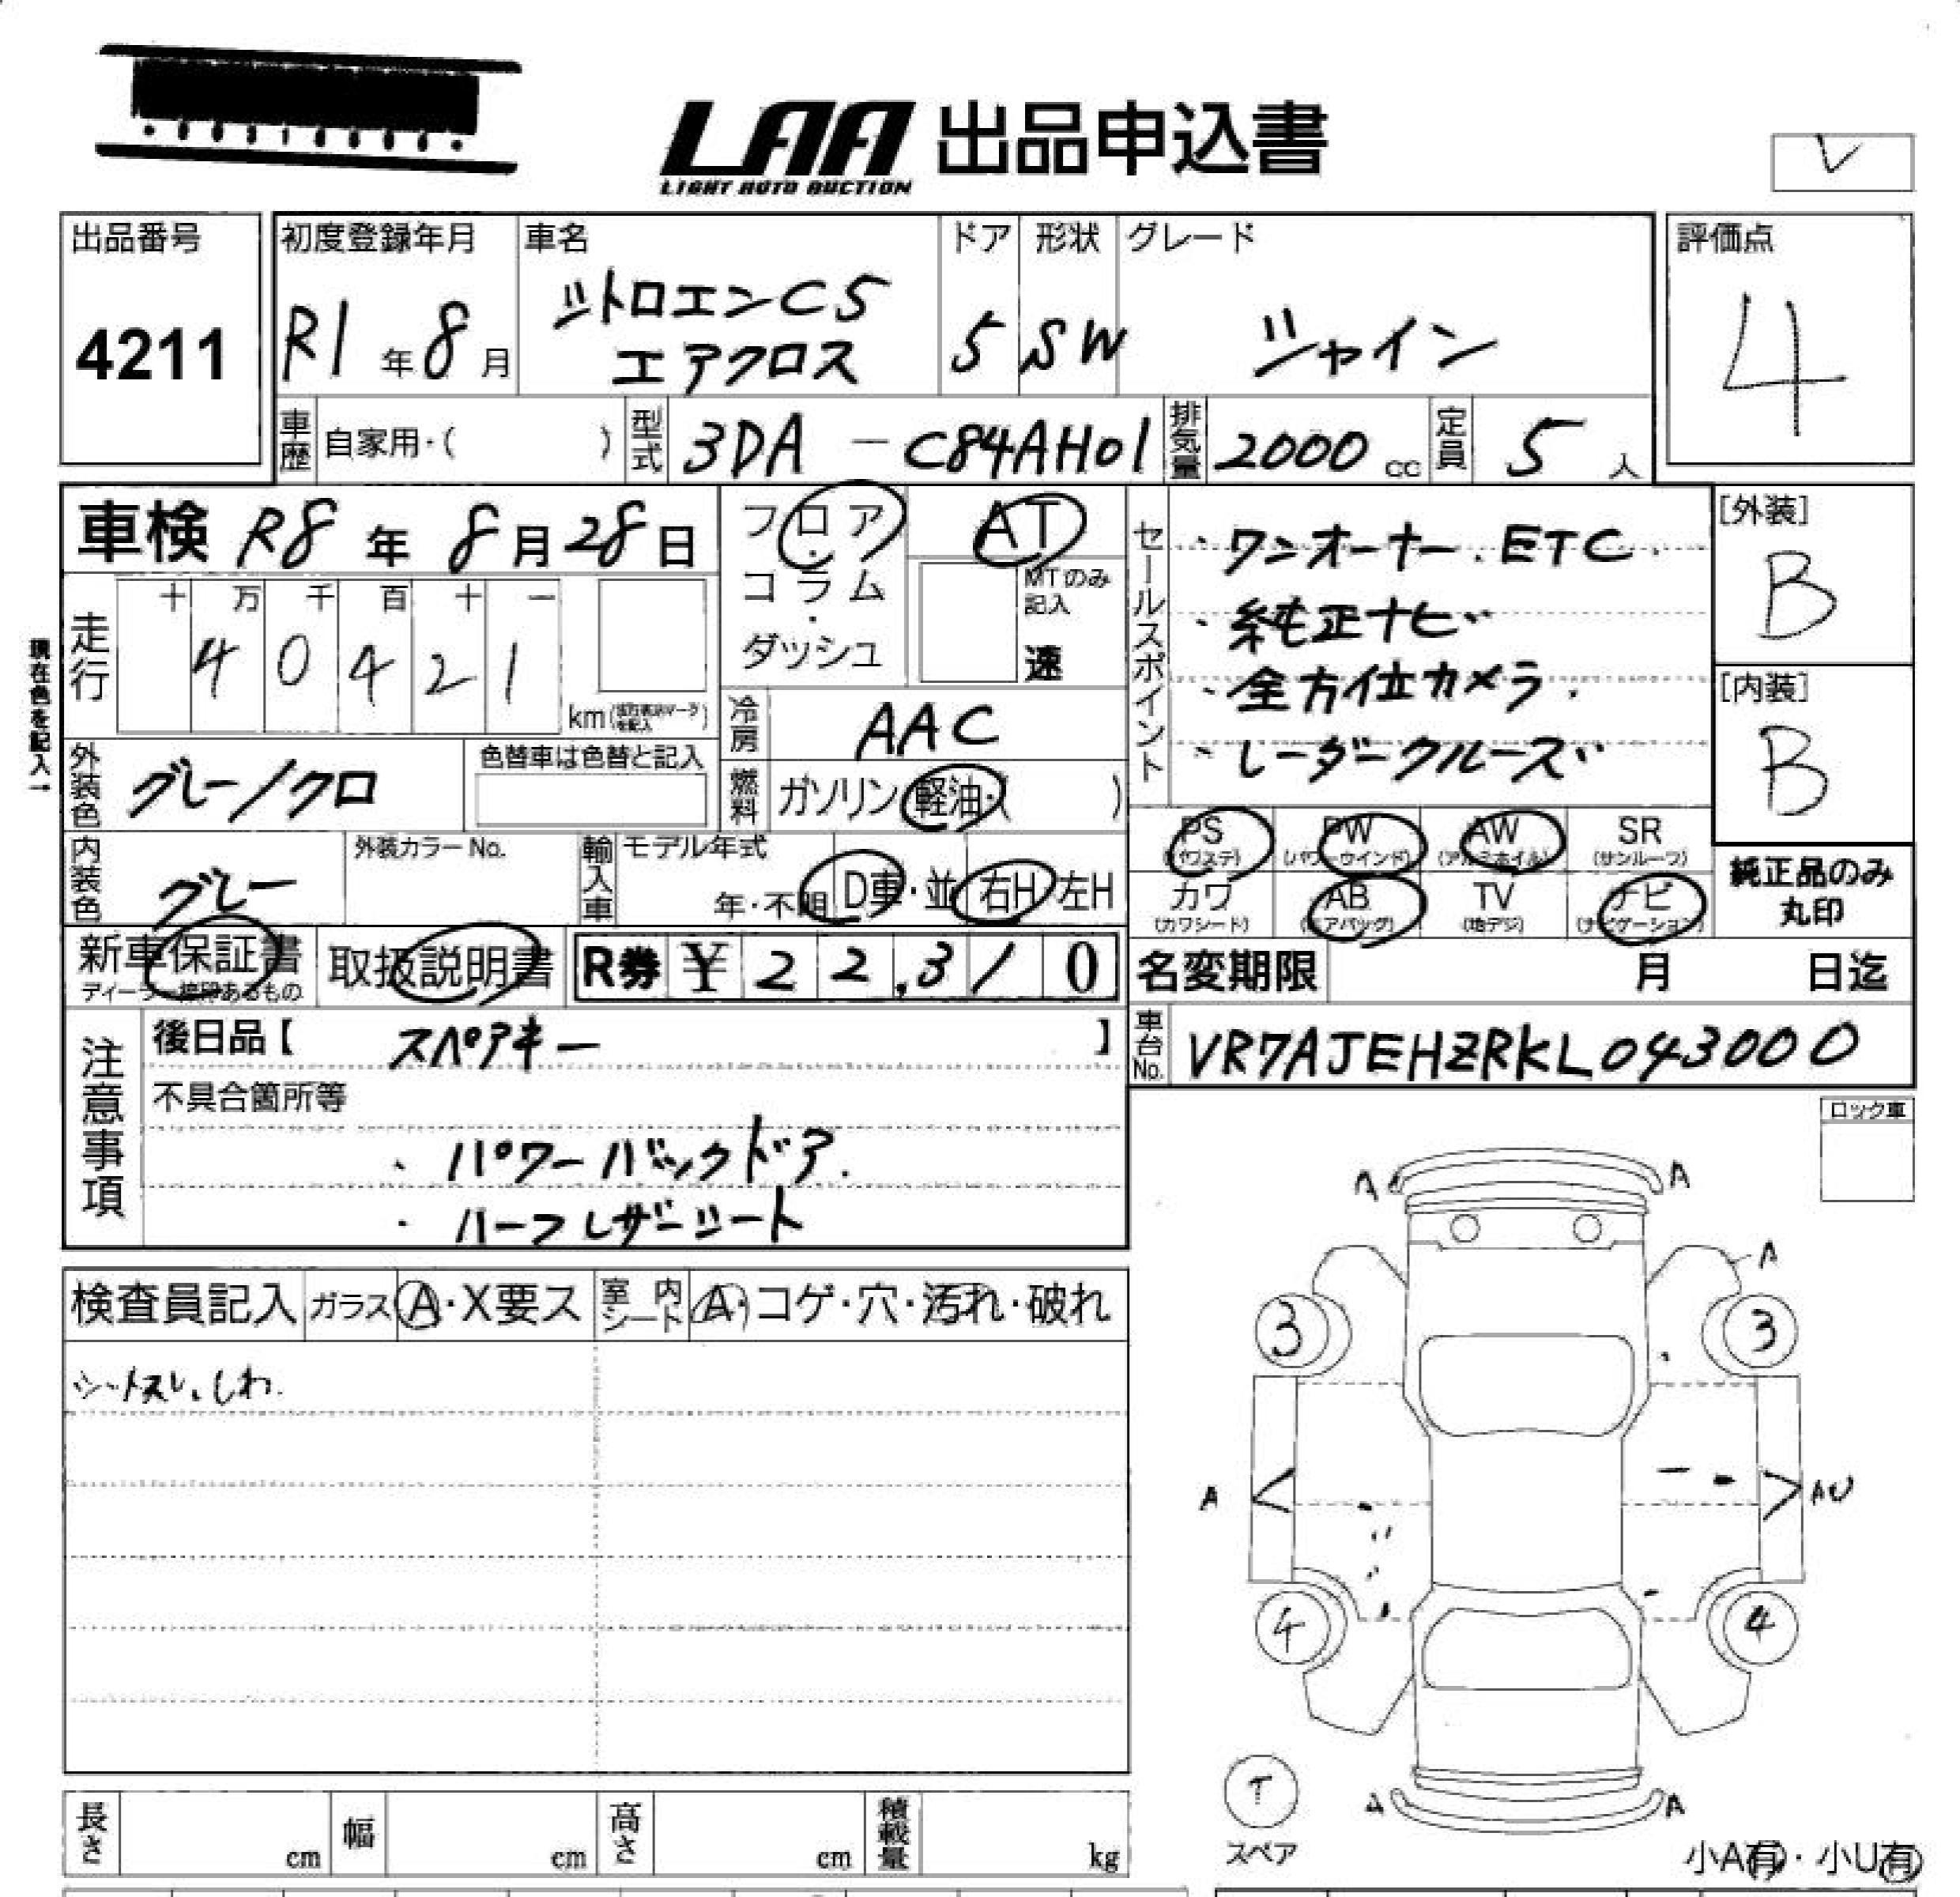 LAA 出品申込書
LIGHT AUTO AUCTION
出品番号
4211
初度登録年月
R1年8月
車名
シトロエンC5
エアクロス
ドア
5
形状
SW
グレード
シャイン
評価点
4
車歴
自家用・( )
型式
3DA - C84AH01
排気量
2000 cc
定員
5人
車検 R8年 8月28日
走行
十 万 千 百 十 一
4 0 4 2 1
km
現在色を記入→
外装色
グレー/クロ
色替車は色替と記入
内装色
グレー
外装カラーNo.
フロア・コラム・ダッシュ
AT
MTのみ記入
速
冷房
AAC
燃料
ガソリン・軽油・( )
輸入車
モデル年式
年・不明
D車・並
右H・左H
セールスポイント
・ワンオーナー.ETC.
・純正ナビ
・全方位カメラ.
・レーダークルーズ
[外装]
B
[内装]
B
PS
(パワステ)
PW
(パワーウインド)
AW
(アルミホイル)
SR
(サンルーフ)
カワ
(カワシート)
AB
(エアバッグ)
TV
(地デジ)
ナビ
(ナビゲーション)
純正品のみ
丸印
新車保証書
ディーラー捺印あるもの
取扱説明書
R券 ¥22,310
名変期限 月 日迄
車台No.
VR7AJEHZRKL043000
注意事項
後日品【 スペアキー 】
不具合箇所等
・パワーバックドア.
・ハーフレザーシート
ロック車
検査員記入
ガラス
A・X要ス
室内シート
A・コゲ・穴・汚れ・破れ
シートスレ、しわ.
A A
A
3 3
A AU
4 4
T
スペア
A A
小A有・小U有
長さ cm
幅 cm
高さ cm
積載量 kg